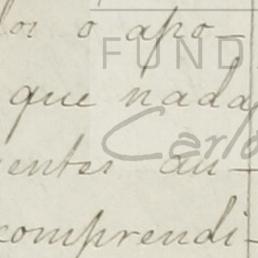 o apo-
FUND
que nada
Carlo
entes au-
comprendi-